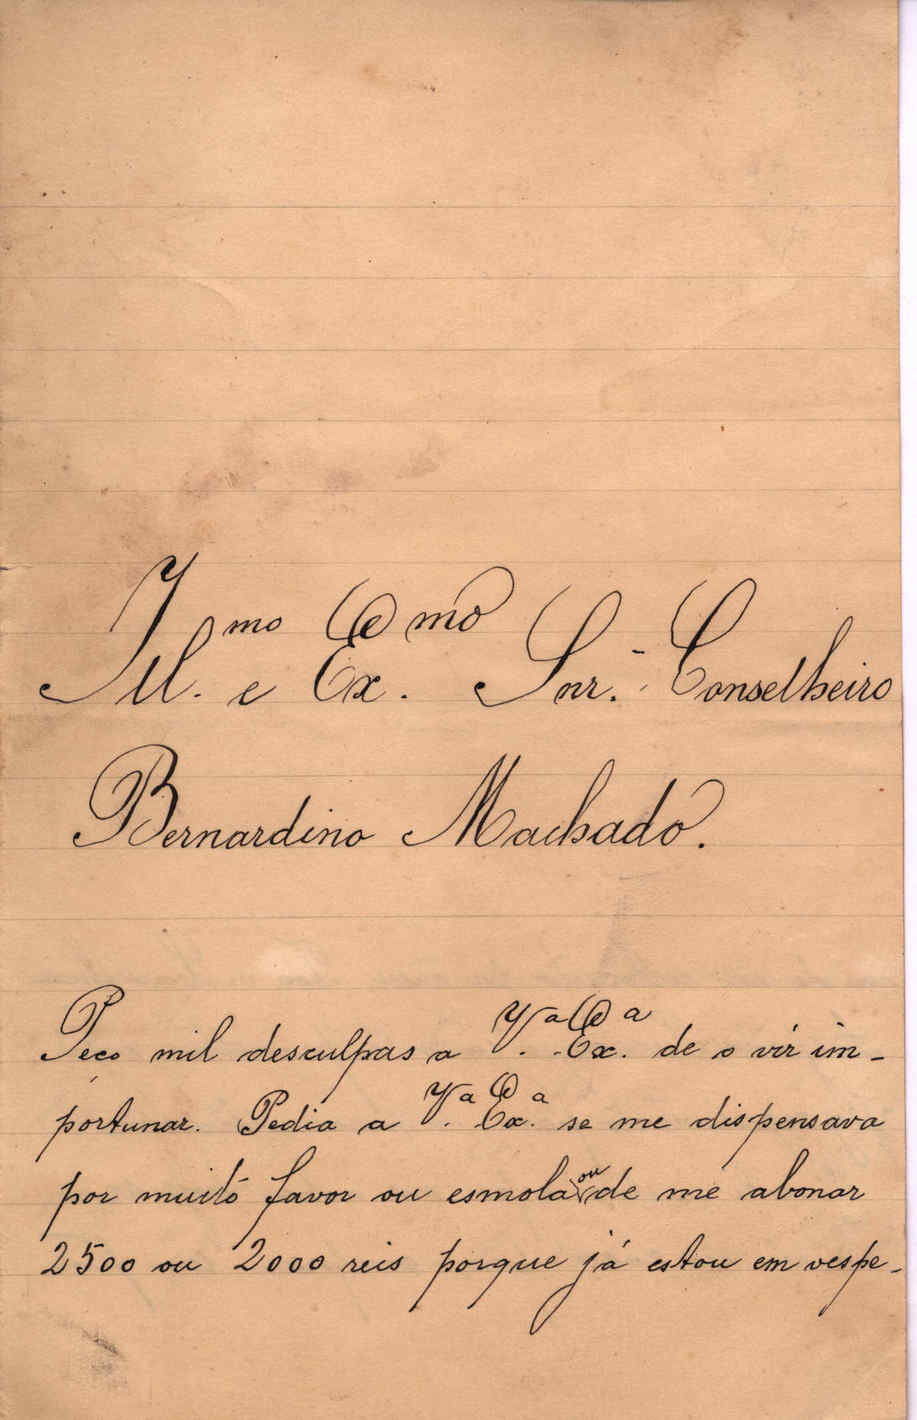 Ill.mo e Ex.mo Snr. Conselheiro
Bernardino Machado.
Peço mil desculpas a V.a Ex.a de o vir im-
portunar. Pedia a V.a Ex.a se me dispensava
por muito favor ou esmola ou de me abonar
2500 ou 2000 reis porque já estou em vespe-